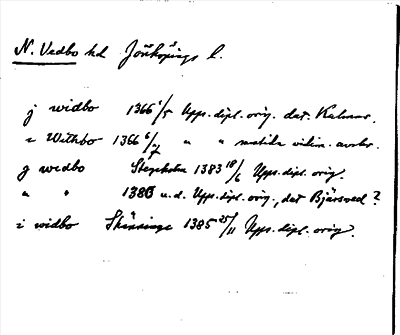 N. Vedbo hd Jönköpings l.
j widbo 1366 1/5 Upps. dipl. orig. dat. Kalmar.
i Withbo 1366 6/7 " " vidim. avskr.
j wedbo Stegeholm 1383 18/6 Upps. dipl. orig.
" " 1383 u.d. Upps. dipl. orig., dat Bjärsved?
i widbo Skänninge 1385 25/11 Upps. dipl. orig.